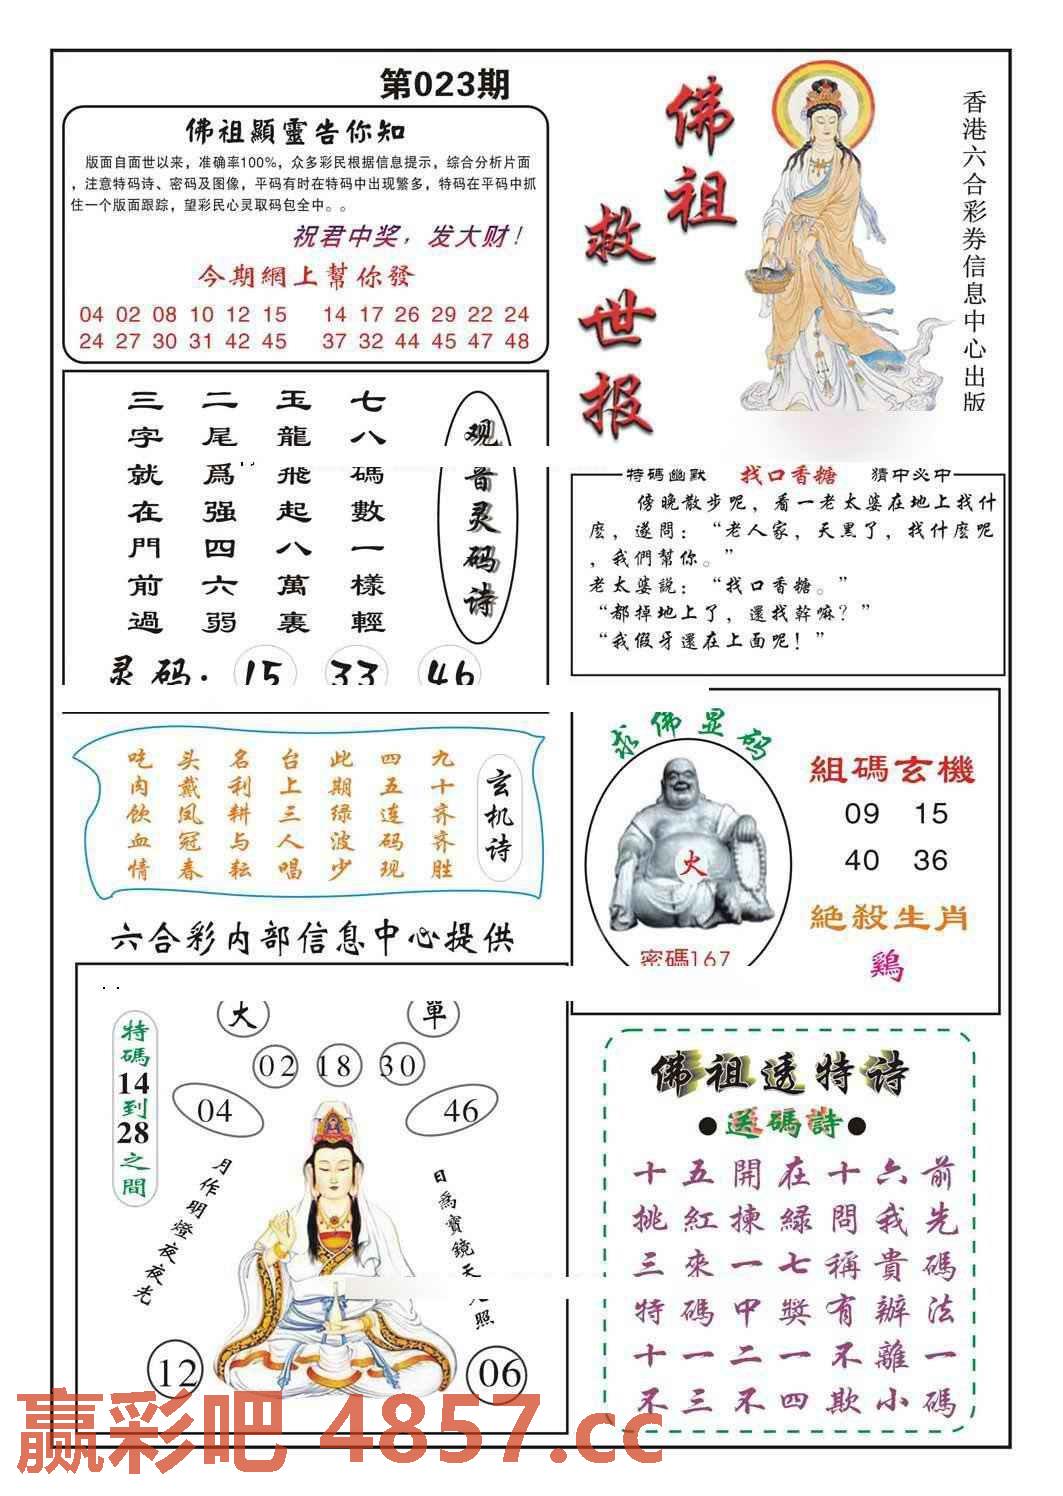 第023期
佛祖顯靈告你知
版面自面世以来，准确率100%，众多彩民根据信息提示，综合分析片面
，注意特码诗、密码及图像，平码有时在特码中出现繁多，特码在平码中抓
住一个版面跟踪，望彩民心灵取码包全中。。
祝君中奖，发大财！
今期網上幫你發
04 02 08 10 12 15 14 17 26 29 22 24
24 27 30 31 42 45 37 32 44 45 47 48
佛祖
救世报
香港六合彩券信息中心出版
观音灵码诗
七八碼數一樣輕
玉龍飛起八萬裏
二尾爲强四六弱
三字就在門前過
灵码: 15 33 46
特碼幽默 找口香糖 猜中必中
傍晚散步呢，看一老太婆在地上找什
麽，遂問：“老人家，天黑了，找什麽呢
，我們幫你。”
老太婆説：“找口香糖。”
“都掉地上了，還找幹嘛？”
“我假牙還在上面呢！”
玄机诗
九十齐齐胜
四五连码现
此期绿波少
台上三人唱
名利耕与耘
头戴凤冠春
吃肉饮血情
求佛显码
火
密碼167
組碼玄機
09 15
40 36
絶殺生肖
鷄
六合彩内部信息中心提供
特碼14到28之間
大 單
02 18 30
04 46
月作明燈夜夜光
日爲寶鏡天 照
12 06
佛祖透特诗
●送碼詩●
十五開在十六前
挑紅揀緑問我先
三來一七稱貴碼
特碼中獎有辦法
十一二一不離一
不三不四欺小碼
赢彩吧 4857.cc